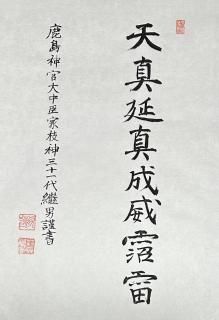 天真延真成威雷
鹿島神官大中臣枝神三十一代繼男謹書